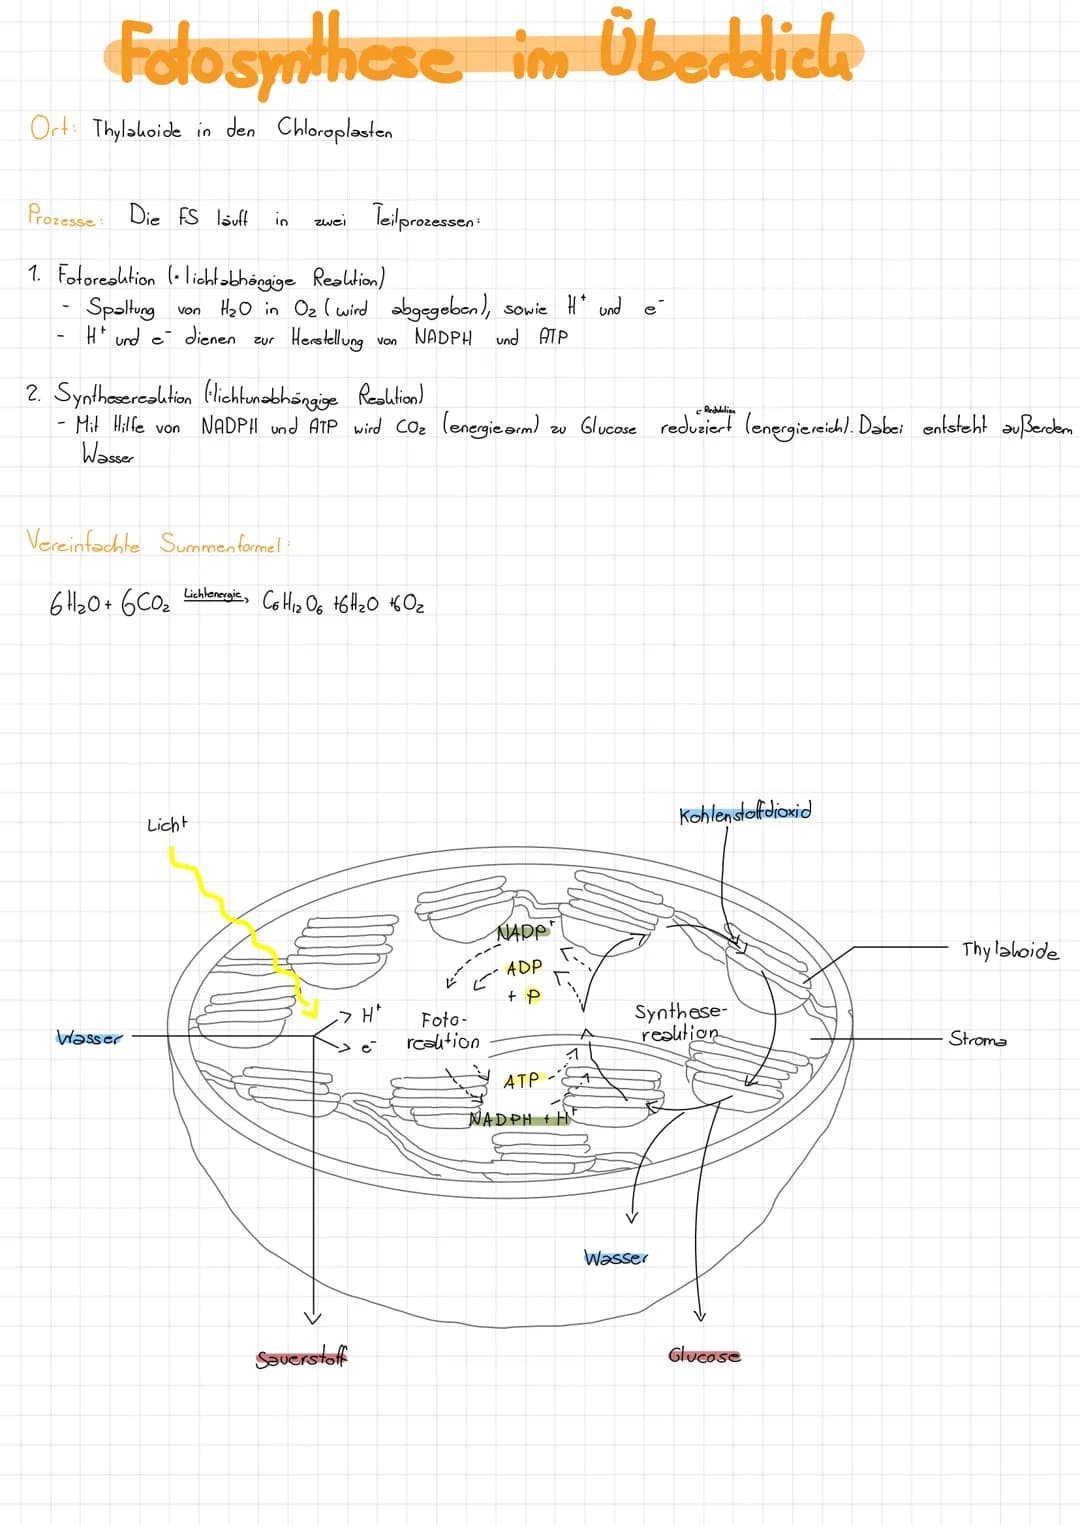 Fotosynthese im Überblick
Ort: Thylakoide in den Chloroplasten
Prozesse: Die FS läuft in zwei Teilprozessen:
1. Fotoreaktion (= lichtabhängige Reaktion)
- Spaltung von H₂O in O₂ (wird abgegeben), sowie H⁺ und e⁻
- H⁺ und e⁻ dienen zur Herstellung von NADPH und ATP
2. Synthesereaktion (=lichtunabhängige Reaktion)
← Reduktion
- Mit Hilfe von NADPH und ATP wird CO₂ (energiearm) zu Glucose reduziert (energiereich). Dabei entsteht außerdem
Wasser
Vereinfachte Summenformel:
6H₂O + 6CO₂ Lichtenergie→ C₆H₁₂O₆ +6H₂O +6O₂
Kohlenstoffdioxid
Licht
NADP⁺
Thylakoide
ADP
+ P
H⁺
Foto-
reaktion
Synthese-
reaktion
Wasser
e⁻
Stroma
ATP
NADPH + H⁺
Wasser
Sauerstoff
Glucose